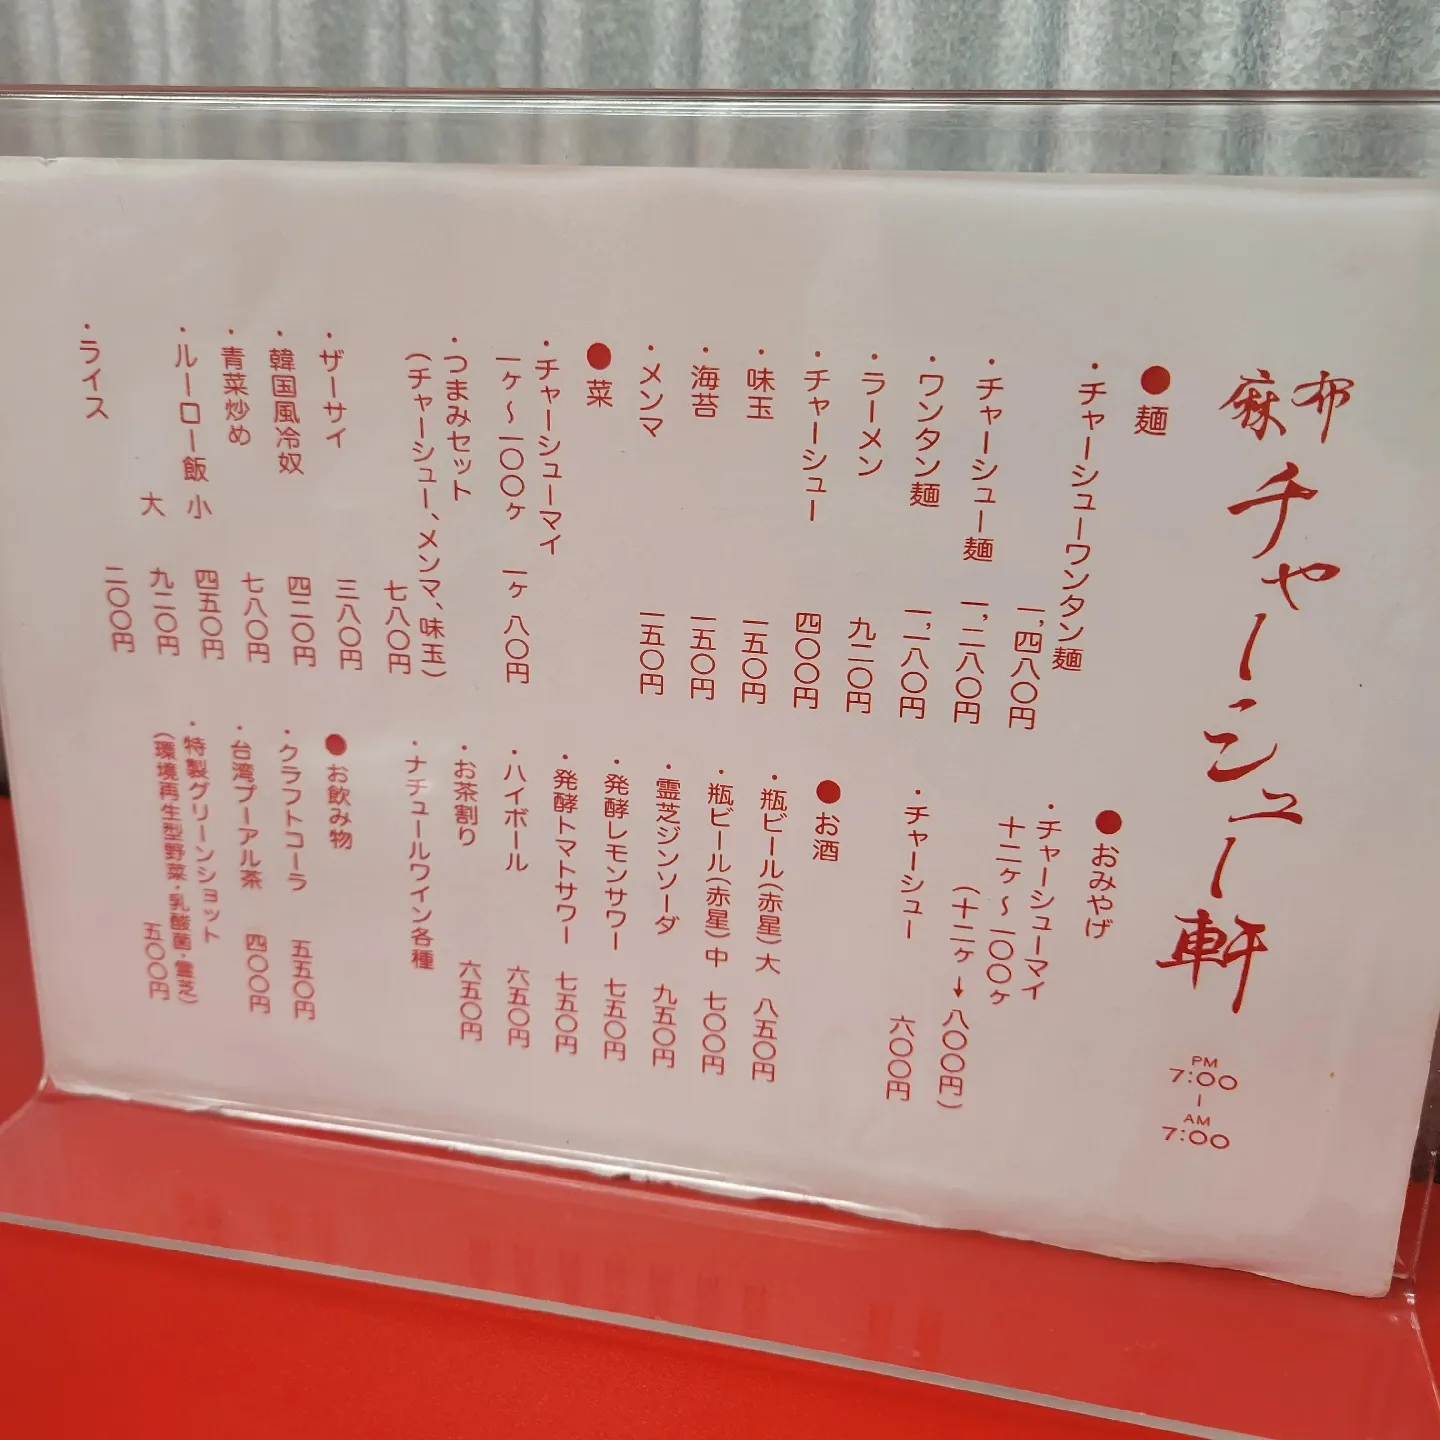 麻布
チャーシュー軒
PM
7:00
|
AM
7:00
●麺
・チャーシューワンタン麺 一、四八〇円
・チャーシュー麺 一、二八〇円
・ワンタン麺 一、一八〇円
・ラーメン 九二〇円
・チャーシュー 四〇〇円
・味玉 一五〇円
・海苔 一五〇円
・メンマ 一五〇円
●菜
・チャーシューマイ
一ヶ〜一〇〇ヶ 一ヶ 八〇円
・つまみセット
(チャーシュー、メンマ、味玉)
七八〇円
・ザーサイ 三八〇円
・韓国風冷奴 四二〇円
・青菜炒め 七八〇円
・ルーロー飯 小 四五〇円
大 九二〇円
・ライス 二〇〇円
●おみやげ
・チャーシューマイ
十二ヶ〜一〇〇ヶ
(十二ヶ→八〇〇円)
・チャーシュー 六〇〇円
●お酒
・瓶ビール(赤星)大 八五〇円
・瓶ビール(赤星)中 七〇〇円
・霊芝ジンソーダ 九五〇円
・発酵レモンサワー 七五〇円
・発酵トマトサワー 七五〇円
・ハイボール 六五〇円
・お茶割り 六五〇円
・ナチュールワイン各種
●お飲み物
・クラフトコーラ 五五〇円
・台湾プーアル茶 四〇〇円
・特製グリーンショット
(環境再生型野菜・乳酸菌・霊芝)
五〇〇円